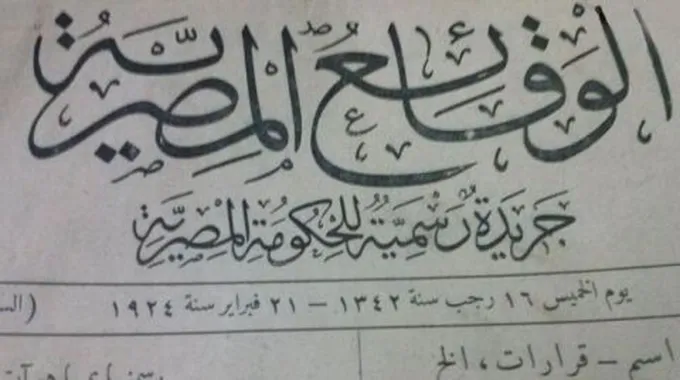 الوقائع المصرية
جريدة رسمية للحكومة المصرية
يوم الخميس ١٦ رجب سنة ١٣٤٢ – ٢١ فبراير سنة ١٩٢٤
اسم – قرارات ، الخ